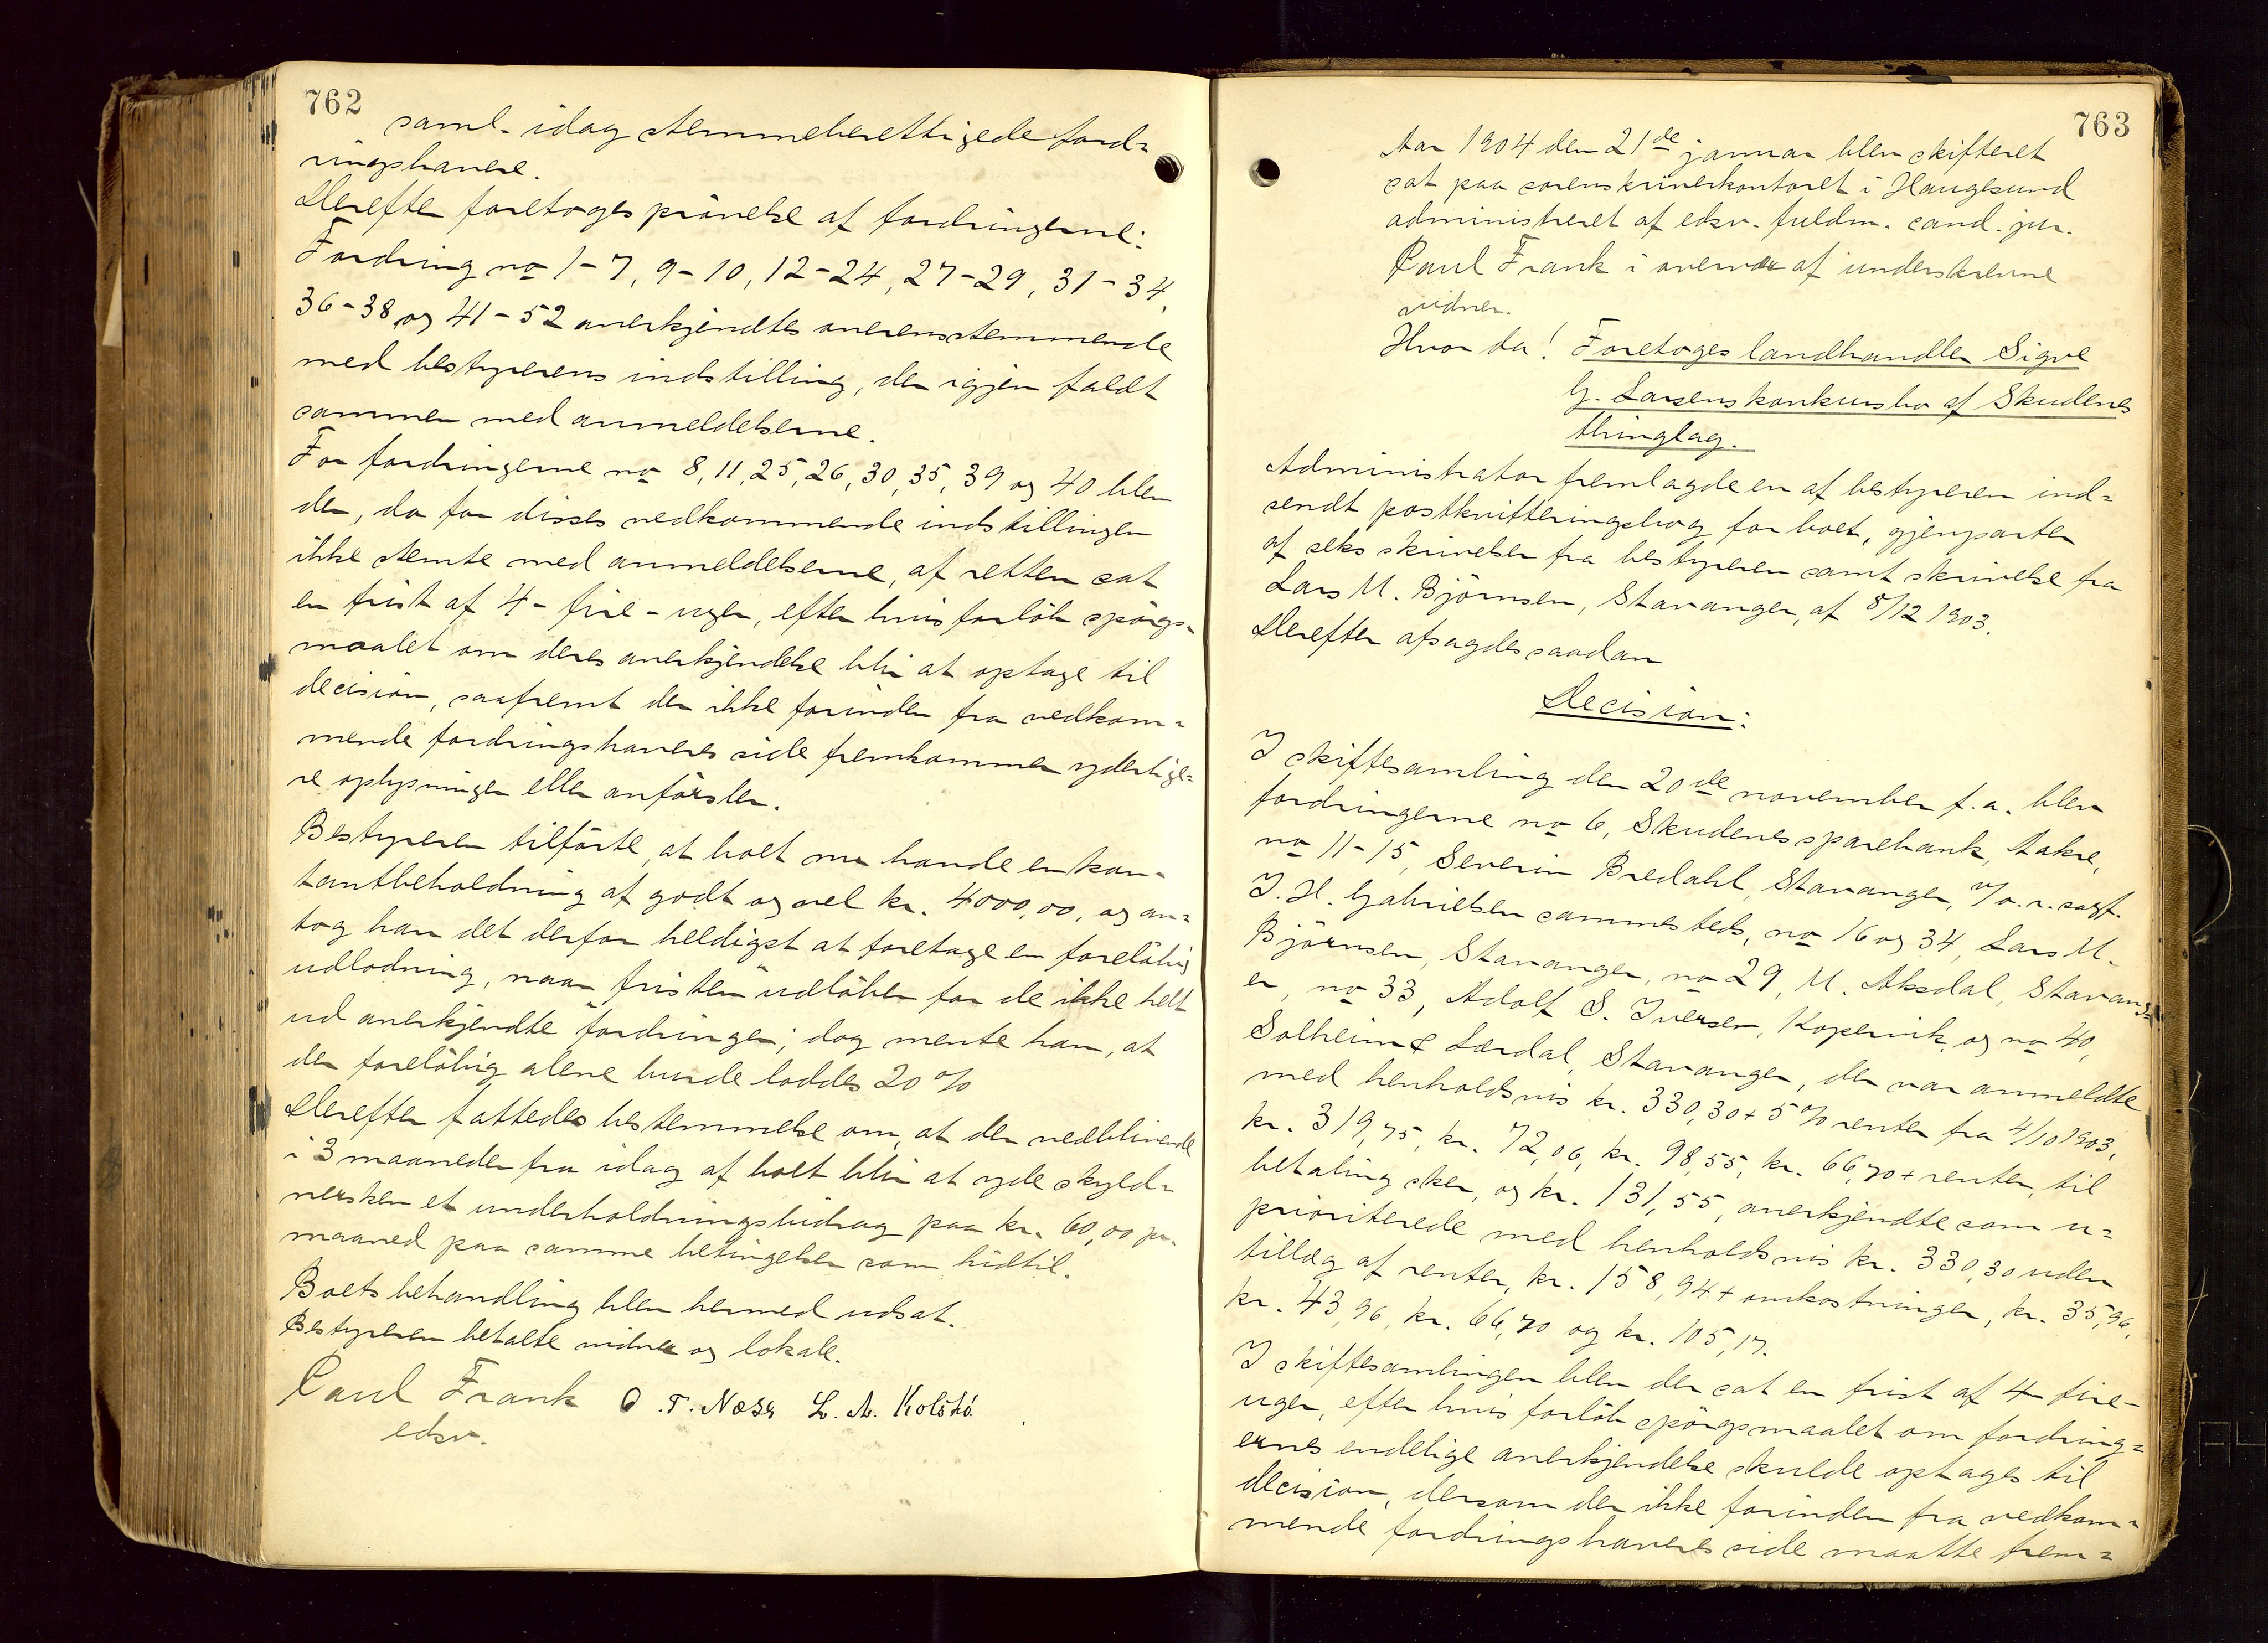 762
saml. idag stemmeberettigede ford=
ringshavere.
Derefter foretoges prövelse af fordringerne:
Fordring no 1-7, 9-10, 12-24, 27-29, 31-34,
36-38 og 41-52 anerkjendtes overensstemmende
med bestyrerens indstilling, der igjen faldt
sammen med anmeldelserne.
For fordringerne no 8, 11, 25, 26, 30, 35, 39 og 40 blev
der, da for disses vedkommende indstillingen
ikke stemte med anmeldelserne, af retten sat
en frist af 4 - fire - uger, efter hvis forlöb spörgs=
maalet om deres anerkjendelse blir at optage til
decision, saafremt der ikke forinden fra vedkom=
mende fordringshaveres side fremkommer yderlige=
re oplysninger eller anförsler.
Bestyreren tilförte, at boet nu havde en kon=
tantbeholdning af godt og vel kr. 4000,00, og an=
tog han det derfor heldigst at foretage en forelöbig
udlodning, naar fristen udlöber for de ikke helt
ud anerkjendte fordringer; dog mente han, at
der forelöbig alene burde loddes 20 %
Derefter fattedes bestemmelse om, at der vedblivende
i 3 maaneder fra idag af boet blir at yde skyld=
nersken et underholdningsbidrag paa kr. 60,00 pr.
maaned paa samme betingelser som hidtil.
Boets behandling blev hermed udsat.
Bestyreren betalte vidner og lokale.
Paul Frank O. T. Næss L. A. Kolstö.
edsv.
763
Aar 1904 den 21de januar blev skifteret
sat paa sorenskriverkontoret i Haugesund
administreret af edsv. fuldm. cand. jur.
Paul Frank i overvær af underskrevne
vidner.
Hvor da! Foretoges landhandler Sigve
G. Larsens konkursbo af Skudenes
thinglag.
Administrator fremlagde en af bestyreren ind=
sendt postkvitteringsbog for boet, gjenparter
af seks skrivelser fra bestyreren samt skrivelse fra
Lars M. Björnsen, Stavanger, af 8/12 1903.
Derefter afsagdes saadan
Decision:
I skiftesamling den 20de november f.a. blev
fordringerne no 6, Skudenes sparebank, Aakre,
no 11-15, Severin Bredahl, Stavanger, v/o.r.sagf.
J. H. Gabrielsen sammesteds, no 16 og 34, Lars M.
Björnsen, Stavanger, no 29, M. Aksdal, Stavang=
er, no 33, Adolf S. Iversen, Kopervik, og no 40,
Solheim & Lærdal, Stavanger, der var anmeldte
med henholdsvis kr. 330,30 + 5 % renter fra 4/10 1903,
kr. 319,75, kr. 72,06, kr. 98,55, kr. 66,70 + renter, til
betaling sker, og kr. 131,55, anerkjendte som u=
prioriterede med henholdsvis kr. 330,30 uden
tillæg af renter, kr. 158,94 + omkostninger, kr. 35,96,
kr. 43,96, kr. 66,70 og kr. 105,17.
I skiftesamlingen blev der sat en frist af 4 - fire -
uger, efter hvis forlöb spörgsmaalet om fordring=
ernes endelige anerkjendelse skulde optages til
decision, dersom der ikke forinden fra vedkom=
mende fordringshaveres side maatte frem=